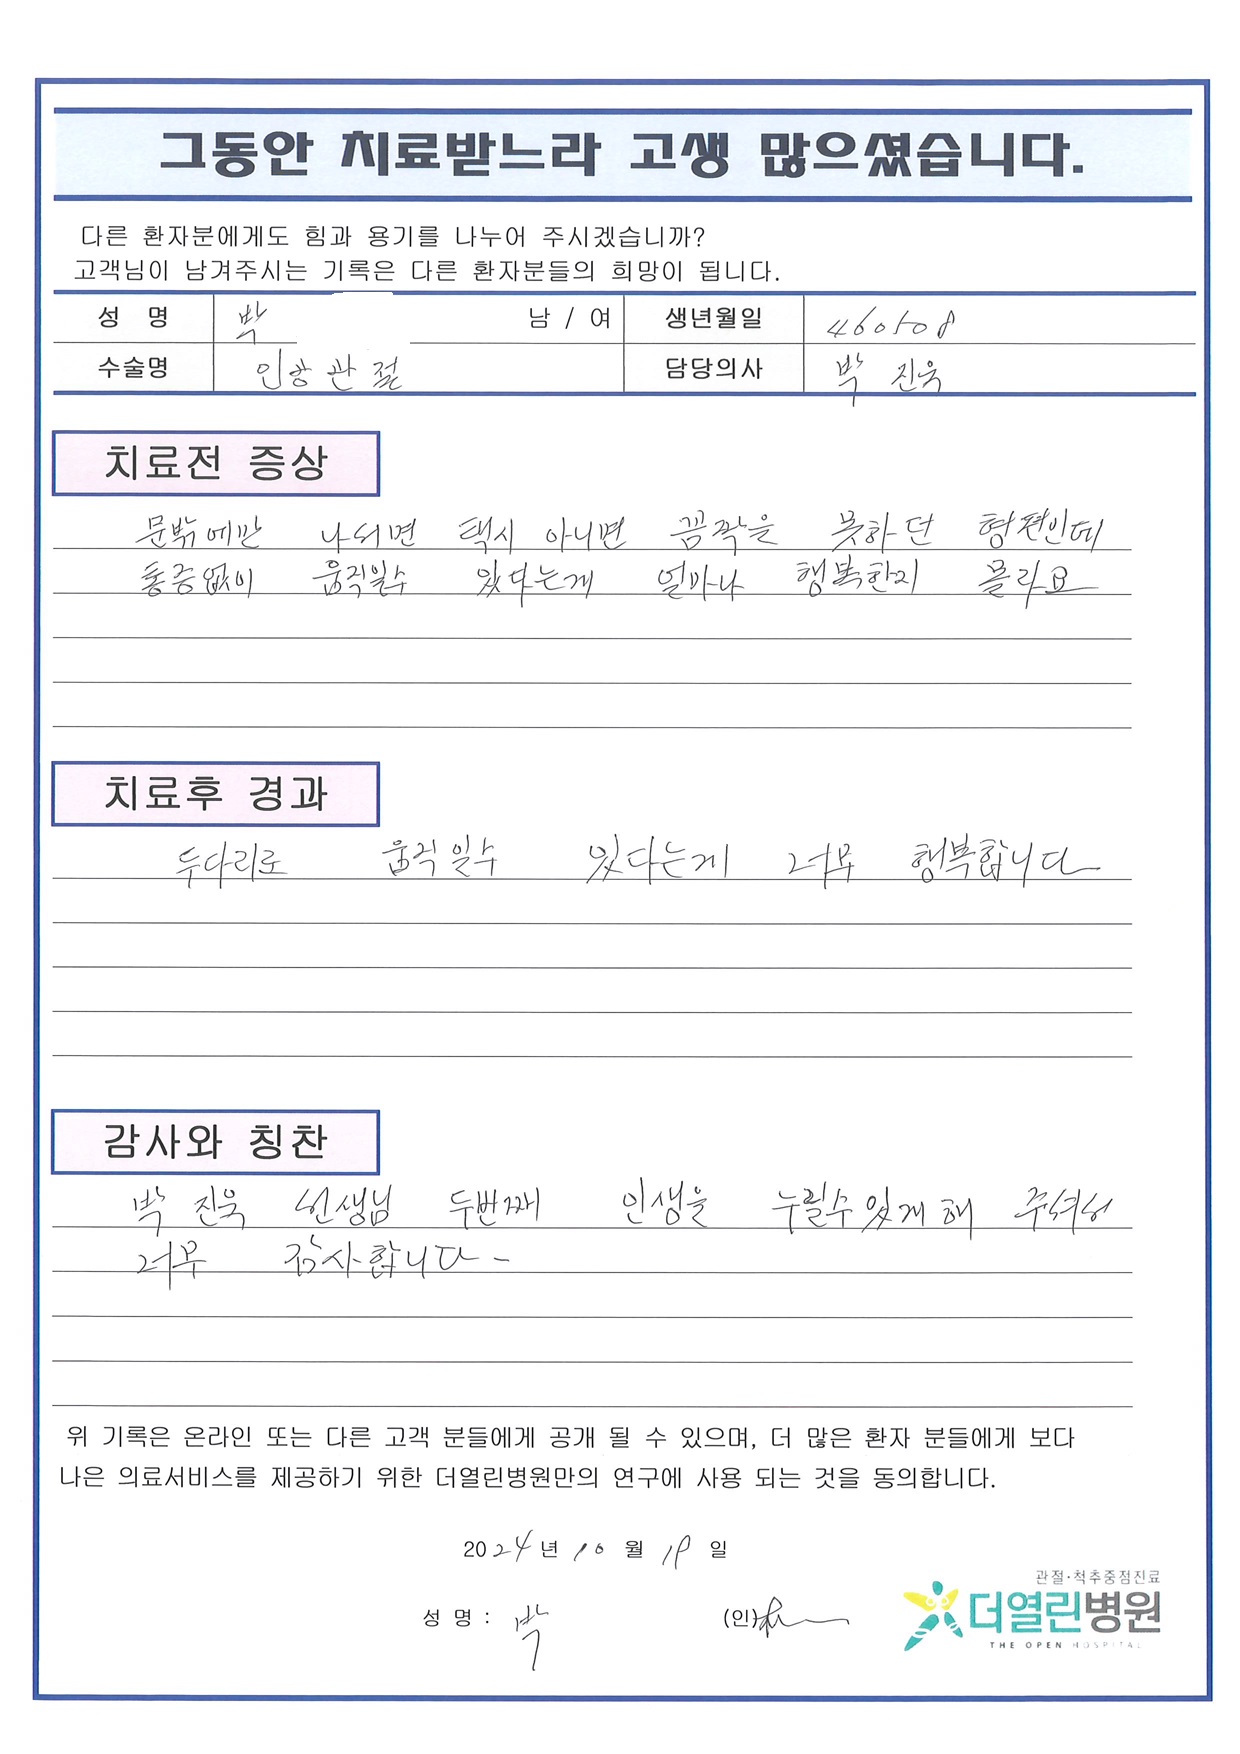 그동안 치료받느라 고생 많으셨습니다.
다른 환자분에게도 힘과 용기를 나누어 주시겠습니까?
고객님이 남겨주시는 기록은 다른 환자분들의 희망이 됩니다.
성 명 박 남 / 여 생년월일 460508
수술명 인공관절 담당의사 박 진욱
치료전 증상
문밖에만 나서면 택시 아니면 꼼짝을 못하던 형편인데
통증없이 움직일수 있다는게 얼마나 행복한지 몰라요
치료후 경과
두다리로 움직일수 있다는게 너무 행복합니다
감사와 칭찬
박 진욱 선생님 두번째 인생을 누릴수있게 해 주셔서
너무 감사합니다-
위 기록은 온라인 또는 다른 고객 분들에게 공개 될 수 있으며, 더 많은 환자 분들에게 보다
나은 의료서비스를 제공하기 위한 더열린병원만의 연구에 사용 되는 것을 동의합니다.
2024년 10 월 19 일
성 명 : 박 (인)
관절·척추중점진료
더열린병원
THE OPEN HOSPITAL